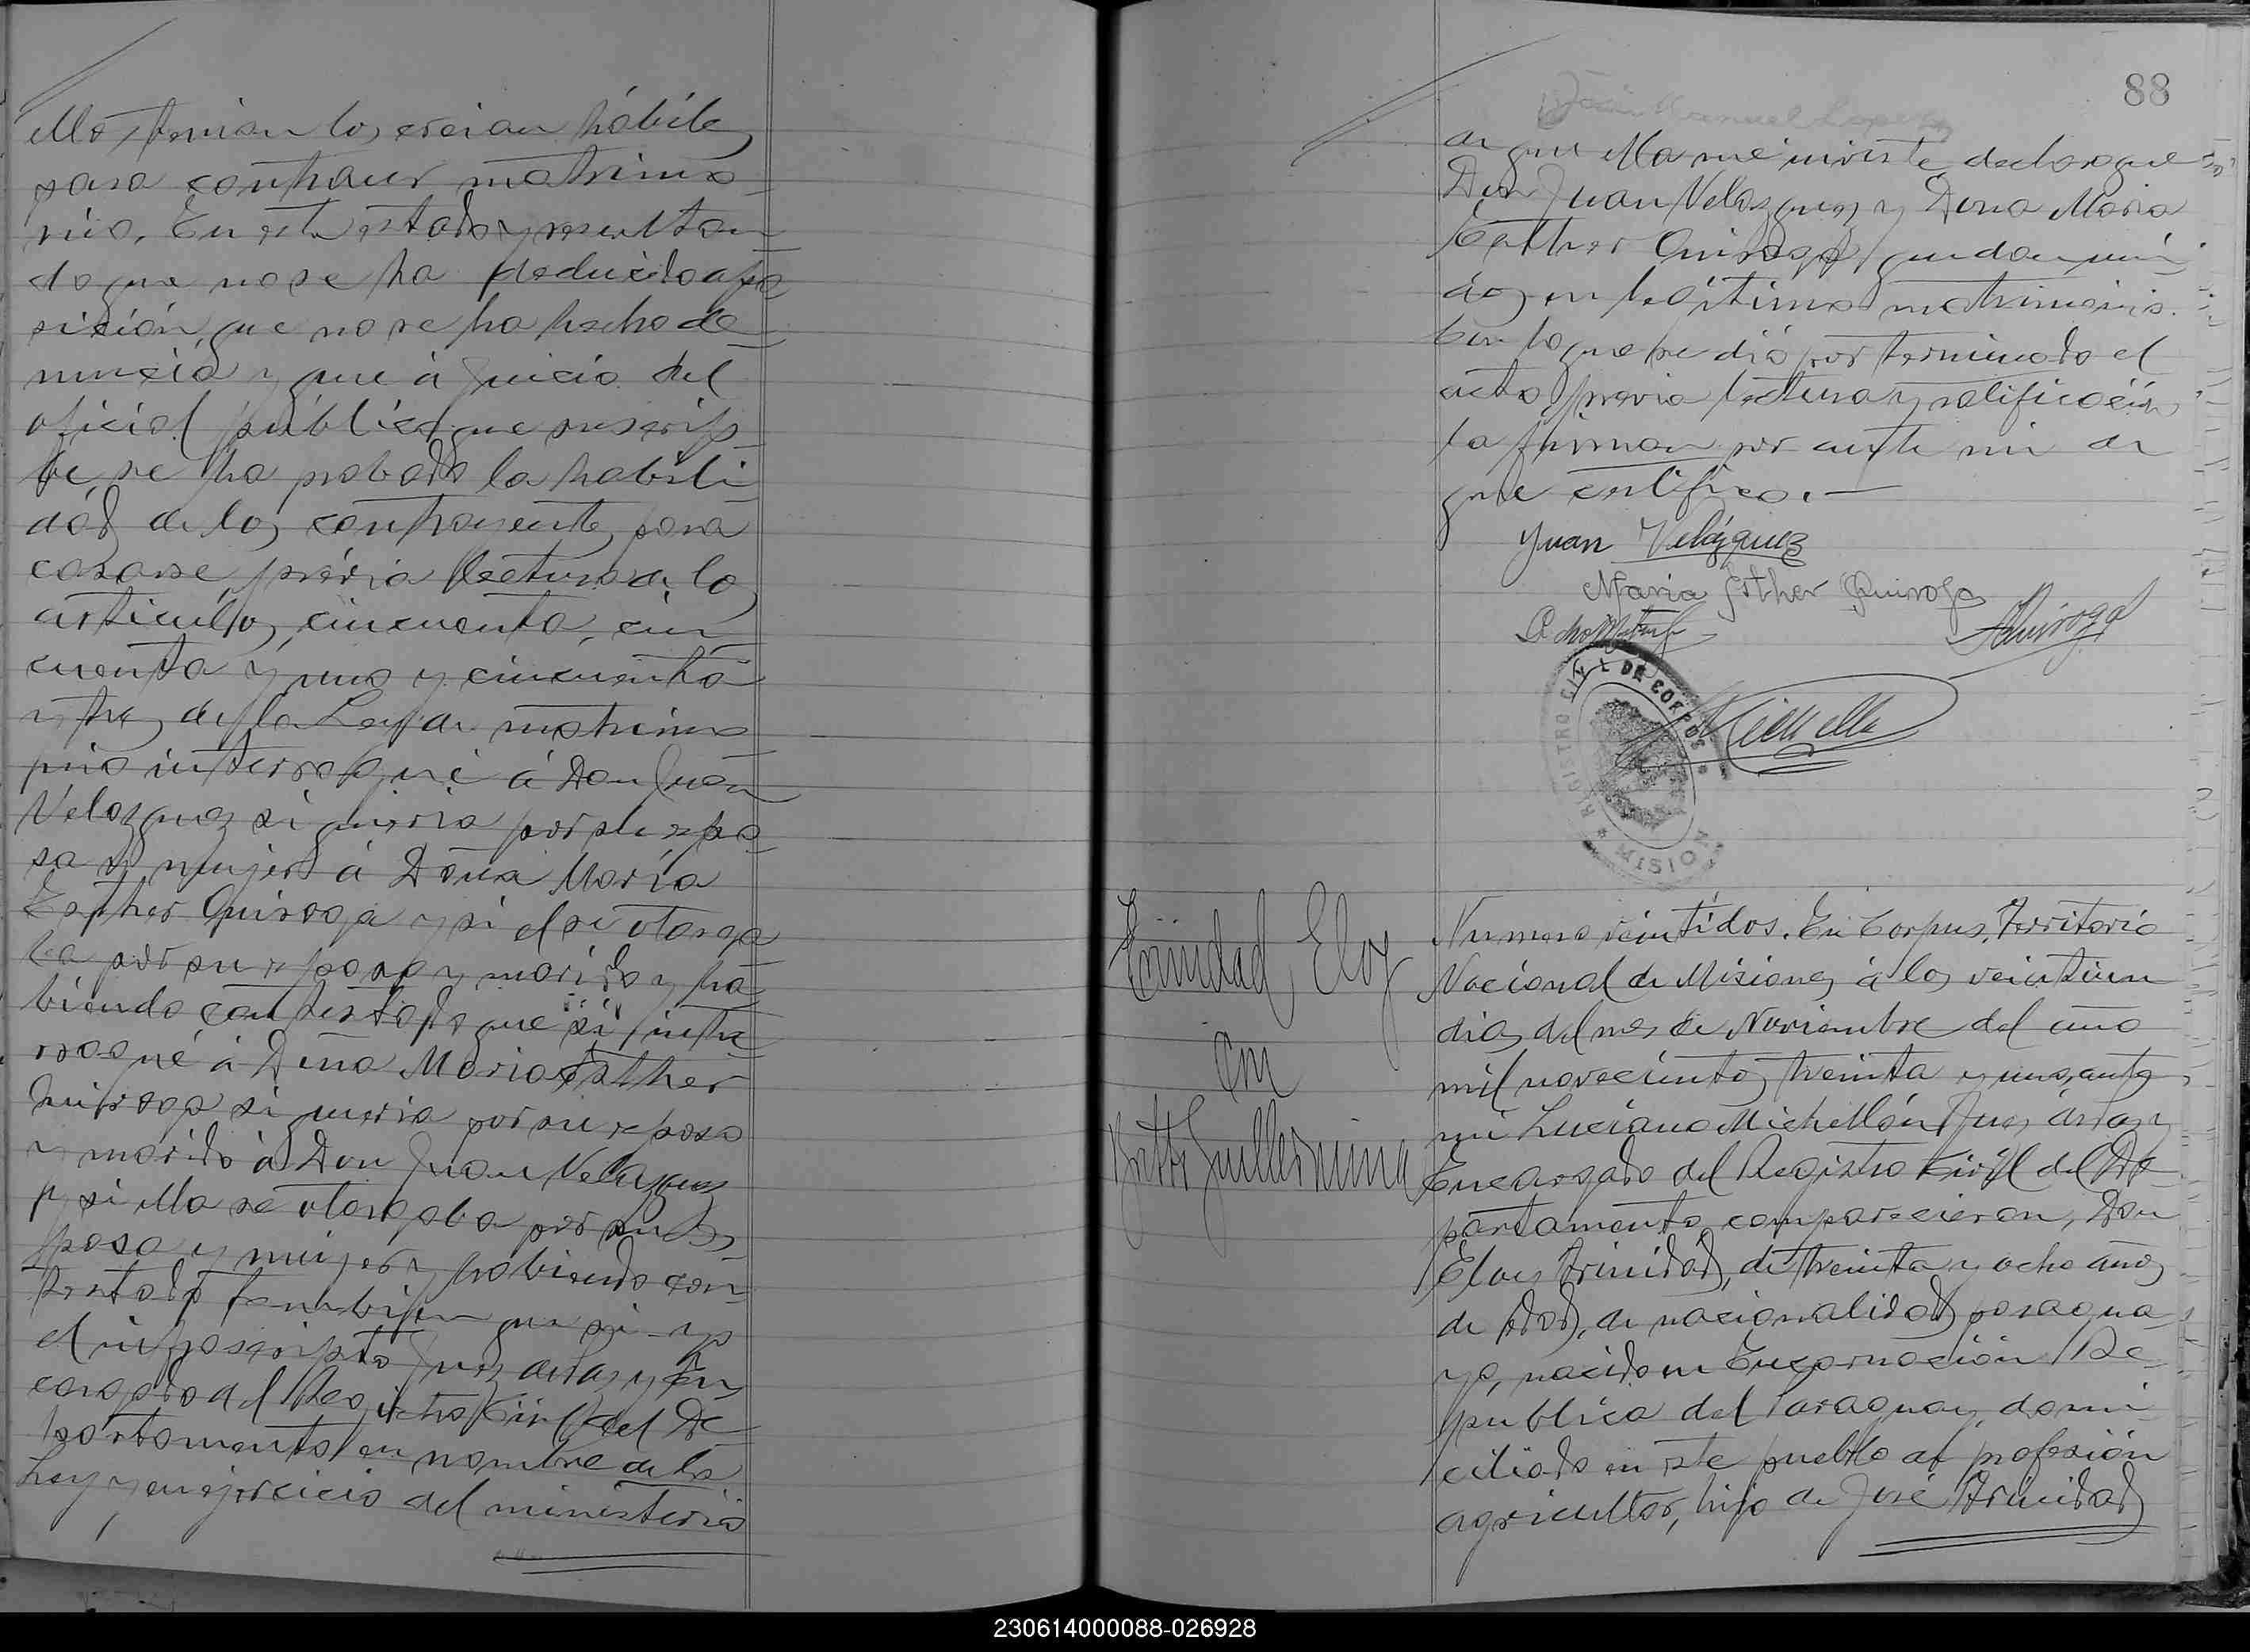 ellos tenian los creian hábiles
para contraer matrimo-
nio. En este estado y resultan-
do que no se ha deducido opo-
sición, que no se ha hecho de-
nuncia y que á juicio del
oficial público que suscri-
be, se ha probado la habili-
dad de los contrayentes para
casarse, prévia lectura de los
articulos, cincuenta, cin-
cuenta y uno y cincuenta
y tres de la Ley de matrimo-
nio interrogué á Don Juan
Velazquez si queria por su espo-
sa y mujer á Doña María
Esther Quiroga y si el se otorga-
ba por su esposo y marido y ha-
biendo contestado que si, inte-
rrogué á Doña Maria Esther
Quiroga si queria por su esposo
y marido á Don Juan Velazquez
y si ella se otorgaba por su es-
posa y mujer y habiendo con-
testado tambien que si yo
el infrascripto Juez de Paz y En-
cargado del Registro Civil del De-
partamento en nombre de la
Ley y en ejercicio del ministerio
88
Manuel Lopez
de que ella me inviste, declaro que
Don Juan Velazquez y Dona Maria
Esther Quiroga, quedan uni-
dos en legítimo matrimonio.
Con lo que se dió por terminado el
acto, previa lectura y ratificación
la firman por ante mi de
que certifico.—
Juan Velázquez
Maria Esther Quiroga
Quiroga
REGISTRO CIVIL DE CORPUS
* MISIONES *
Trinidad Eloy
con
Guillermina
Numero veintidos. En Corpus, Territorio
Nacional de Misiones á los veintiun
dias del mes de Noviembre del año
mil novecientos treinta y uno, ante
mi Luciano Michellón Juez de Paz y
Encargado del Registro Civil del De-
partamento comparecieron, Don
Eloy Trinidad, de treinta y ocho años
de edad, de nacionalidad paragua-
yo, nacido en Encarnación Re-
publica del Paraguay, domi-
ciliado en este pueblo de profesión
agricultor, hijo de José Trinidad
230614000088-026928